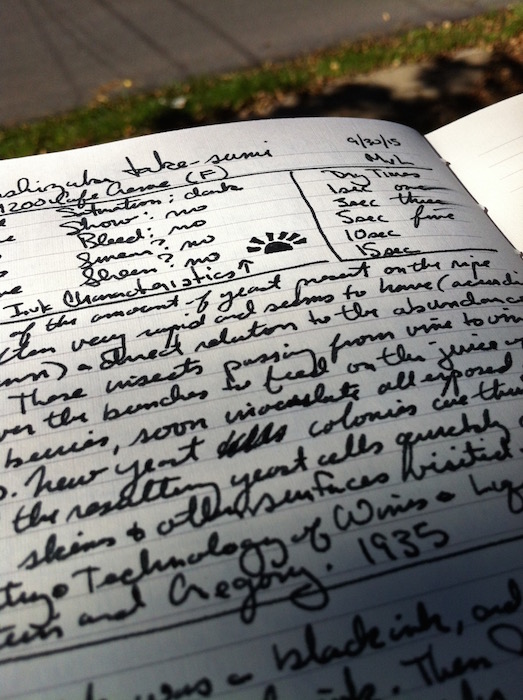 take-sumi
9/30/15
1200 Cafe Creme (F)
Dry Times
Saturation: dark
1sec one
Show: no
3sec three
Bleed: no
5sec five
Smear? no
10sec
Sheen? no
15sec
Ink Characteristics ↑
of the amount of yeast present on the ripe
very rapid and seems to have
a direct relation to the abundance
These insects passing from vine to
the bunches to feed on the juice
berries, soon inoculate all exposed
New yeast colonies are
the resulting yeast cells quickly
skins & other surfaces visited
Technology of Wines &
and Cregory. 1935
was a black ink, and
Then